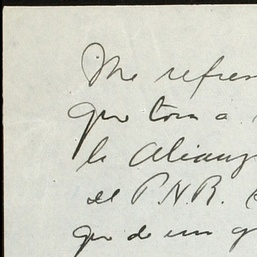 Me refer
que toca a
la Alianz
del P.N.R. (
que de un g